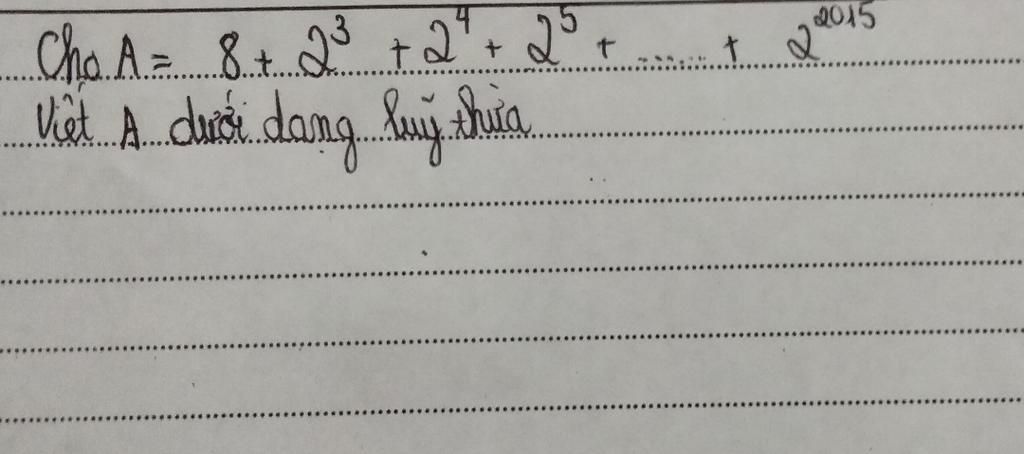 Cho A = 8 + 2³ + 2⁴ + 2⁵ + ....... + 2²⁰¹⁵
Viết A dưới dạng luỹ thừa